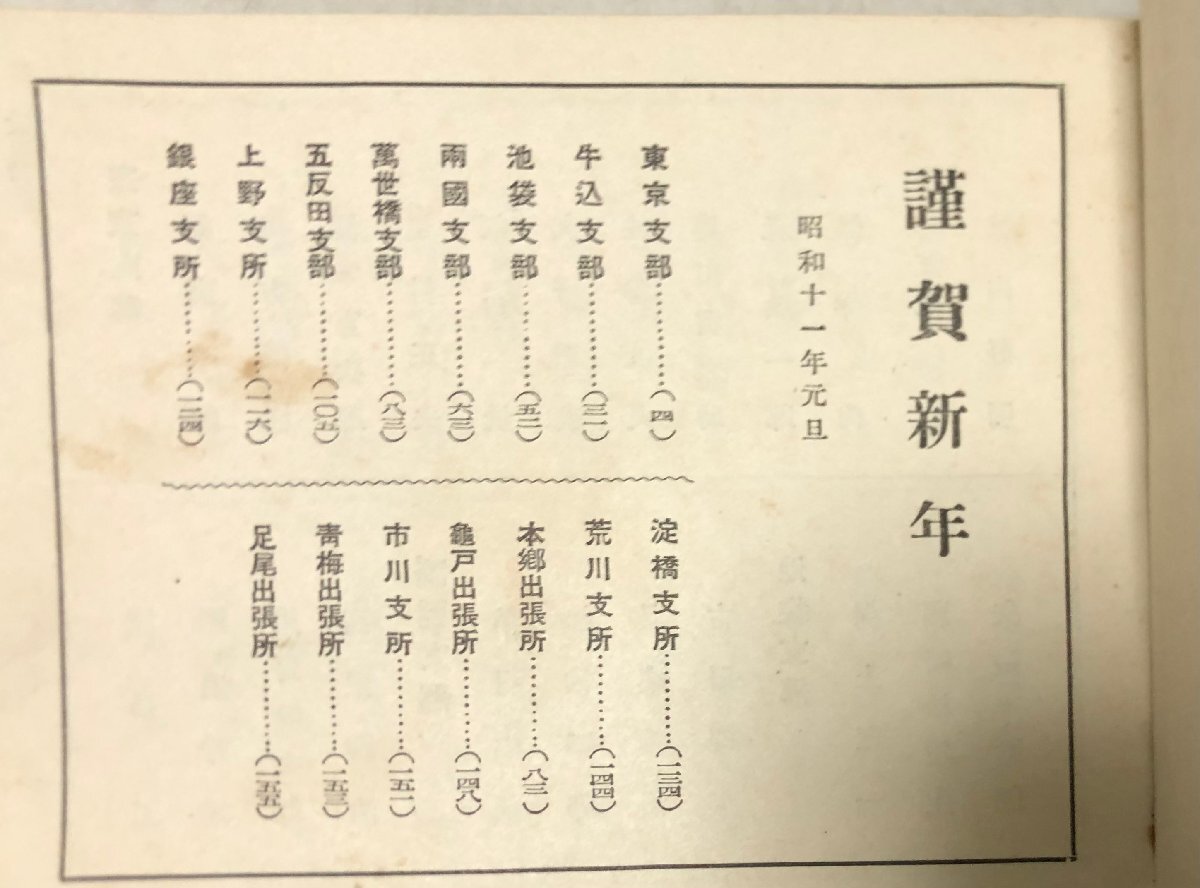 謹賀新年
昭和十一年元旦
東京支部………(四)
牛込支部………(三一)
池袋支部………(五二)
兩國支部………(六三)
萬世橋支部………(八三)
五反田支部………(一〇五)
上野支所………(一一六)
銀座支所………(一二四)
淀橋支所………(一三四)
荒川支所………(一四四)
本鄕出張所………(八三)
龜戸出張所………(一四八)
市川支所………(一五一)
靑梅出張所………(一五三)
足尾出張所………(一五五)